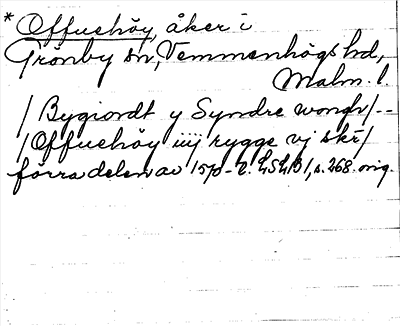 * Offuehöy, åker i
Grönby sn, Vemmenhögs hd,
Malm. l.
/ Bygiordt y Syndre wongh/--
/Offuehöy iiij rygge vj skr/
förra delen av 1570-t. LSLB 1, s. 268. orig.